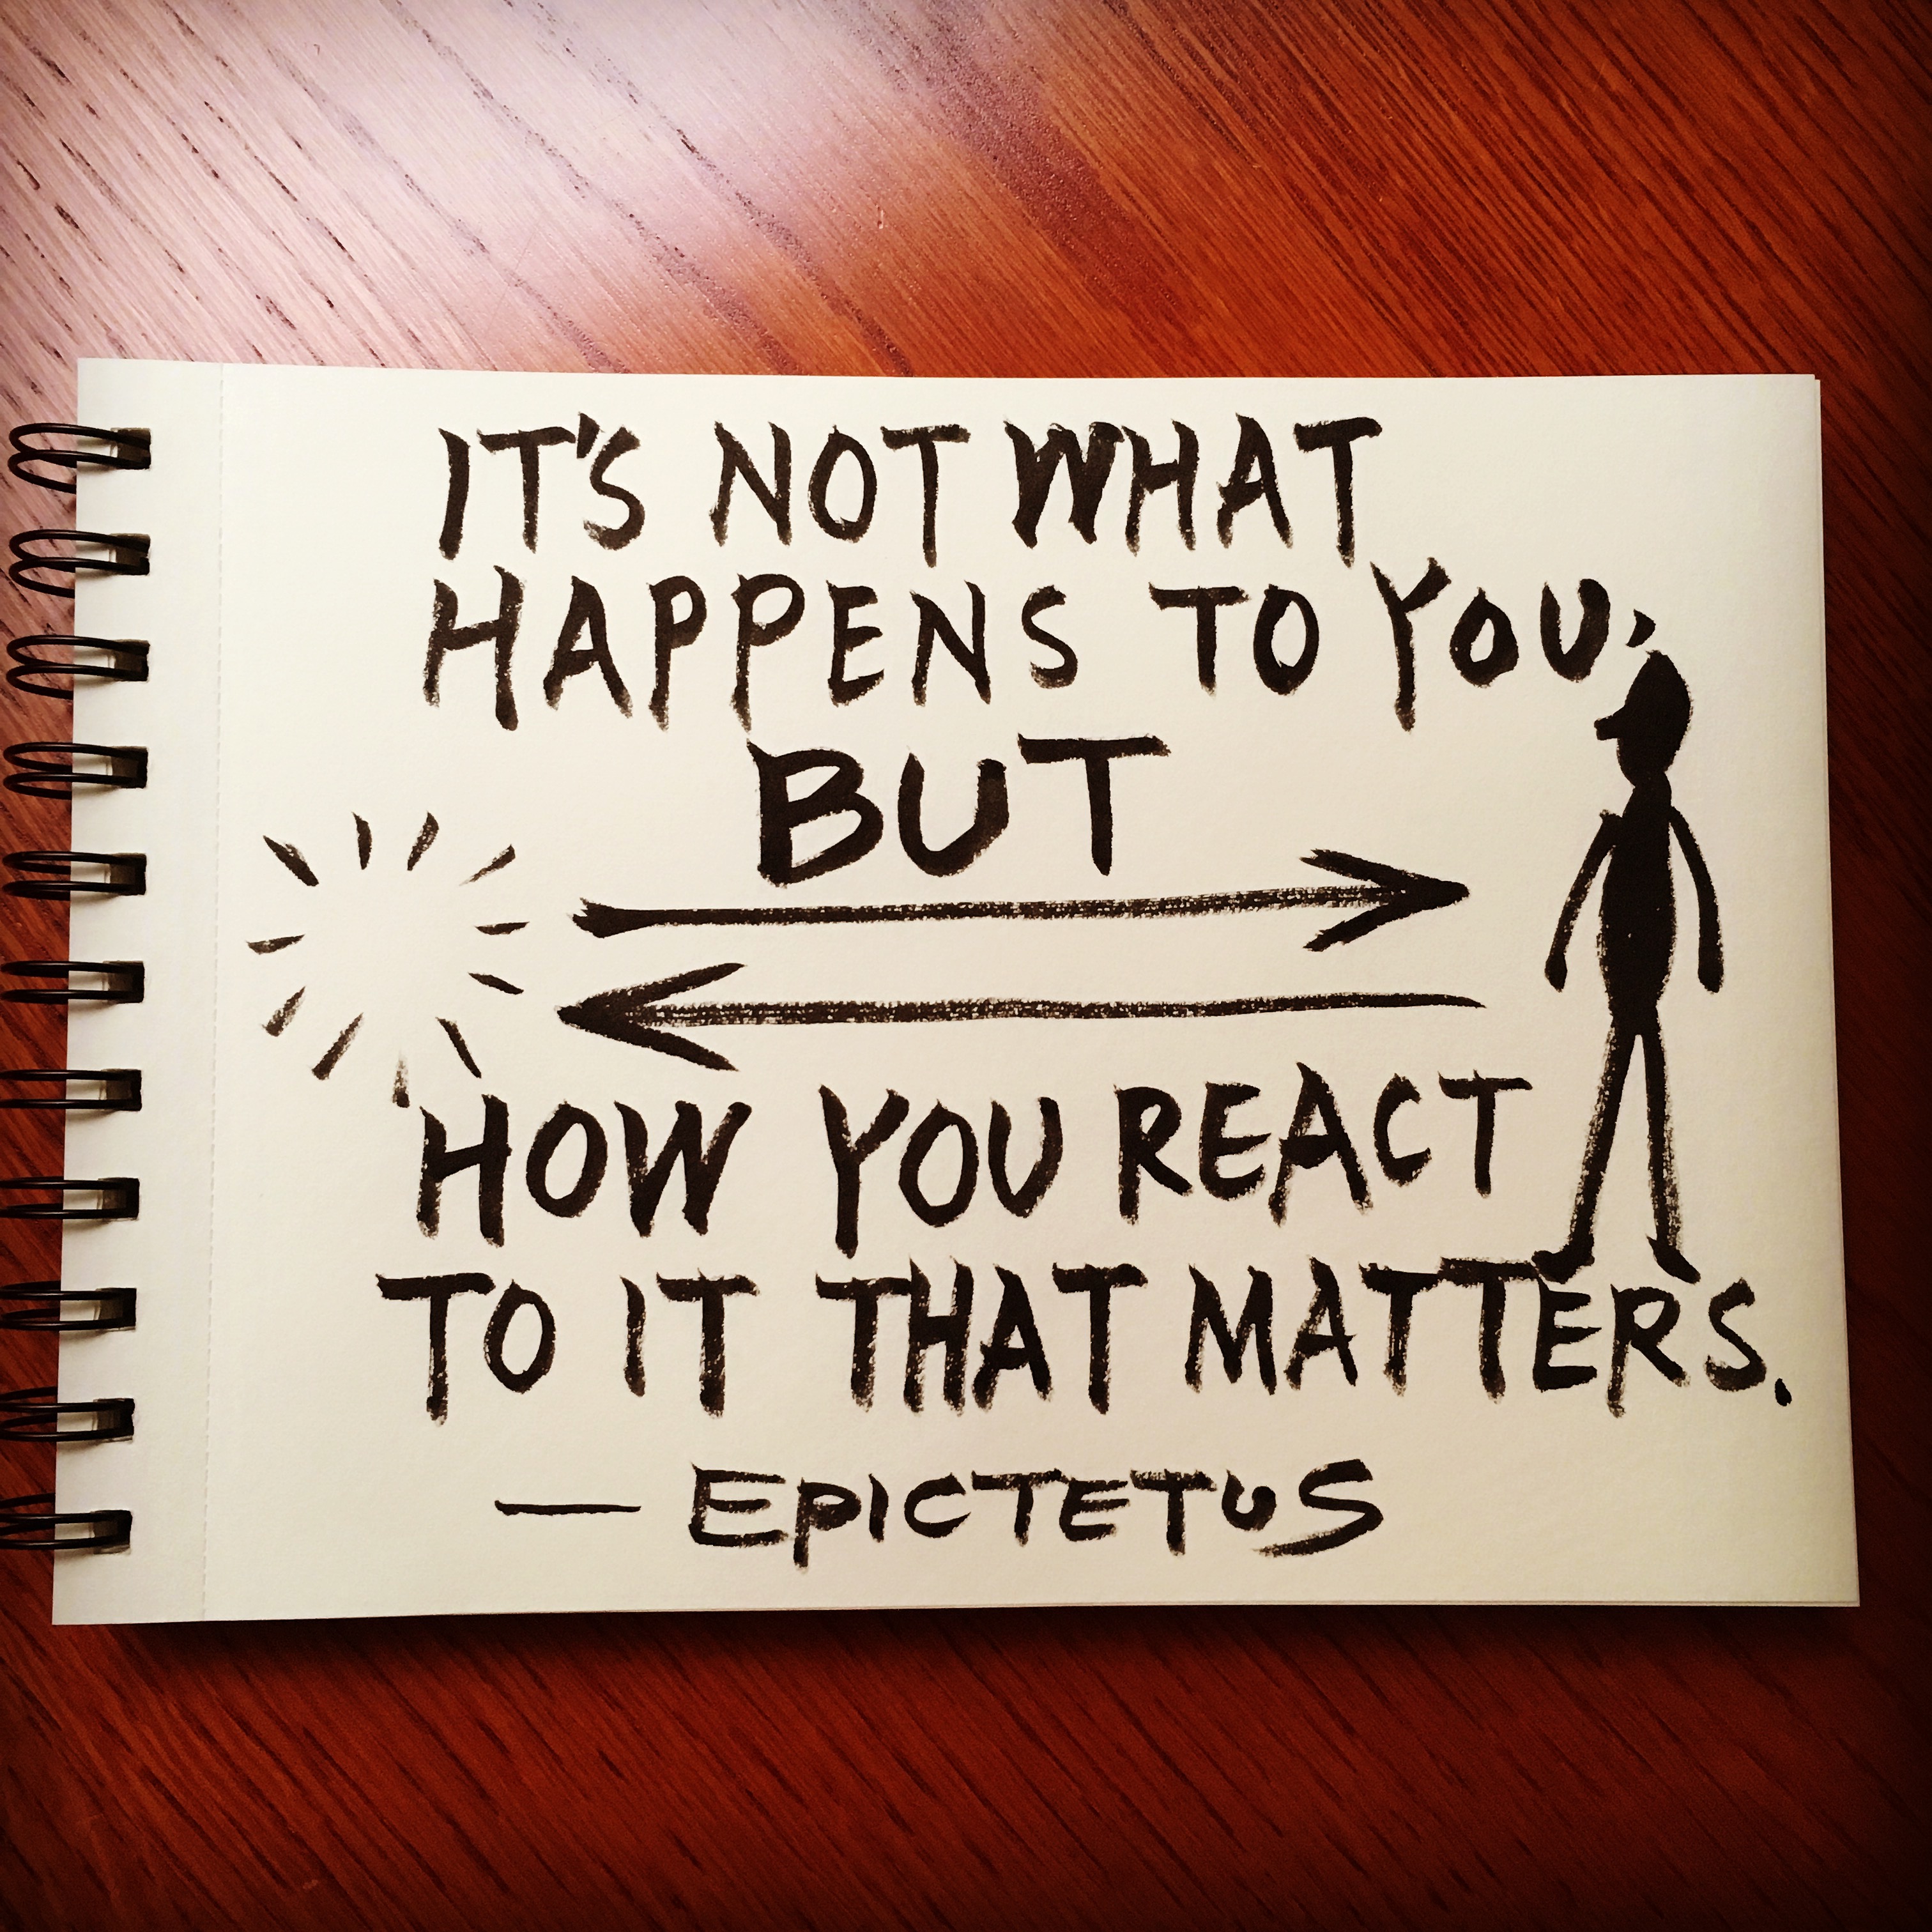 IT'S NOT WHAT
HAPPENS TO YOU,
BUT
HOW YOU REACT
TO IT THAT MATTERS.
— EPICTETUS